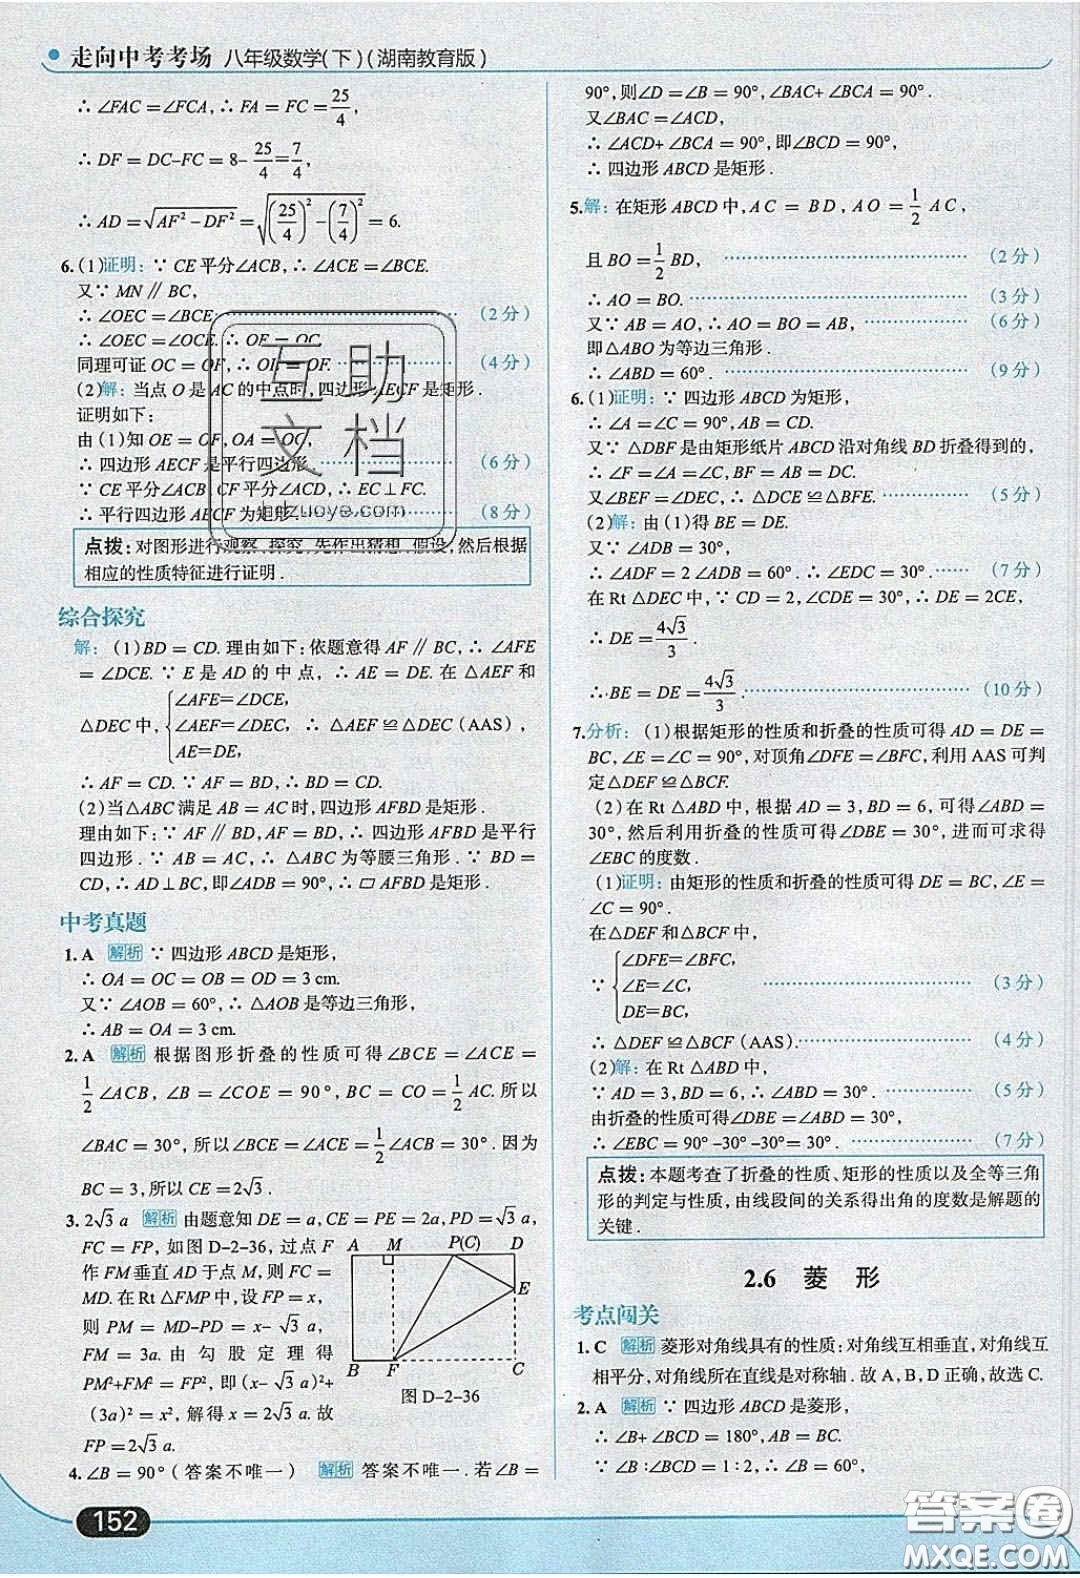 走向中考考场 八年级数学(下)(湖南教育版)
∴ ∠FAC = ∠FCA, ∴ FA = FC = 25/4,
∴ DF = DC–FC = 8–25/4=7/4,
∴ AD = √(AF²–DF²) = √((25/4)²–(7/4)²) = 6.
6.(1)证明: ∵ CE 平分∠ACB, ∴ ∠ACE = ∠BCE.
又∵ MN ∥ BC,
∴ ∠OEC = ∠BCE. (2分)
∴ ∠OEC = ∠OCE. ∴ OE = OC.
同理可证 OC = OF, ∴ OE = OF. (4分)
(2)解: 当点 O 是 AC 的中点时,四边形 AECF 是矩形.
证明如下:
由(1)知 OE = OF, OA = OC,
∴ 四边形 AECF 是平行四边形. (6分)
∵ CE 平分∠ACB, CF 平分∠ACD, ∴ EC⊥FC.
∴ 平行四边形 AECF 为矩形. (8分)
点拨:对图形进行观察、探究,先作出猜想、假设,然后根据
相应的性质特征进行证明.
综合探究
解: (1)BD = CD. 理由如下:依题意得 AF ∥ BC, ∴ ∠AFE
= ∠DCE. ∵ E 是 AD 的中点, ∴ AE = DE. 在 △AEF 和
△DEC 中, { ∠AFE=∠DCE,
∠AEF=∠DEC, ∴ △AEF ≌ △DEC (AAS),
AE=DE,
∴ AF = CD. ∵ AF = BD, ∴ BD = CD.
(2)当△ABC 满足 AB = AC 时,四边形 AFBD 是矩形.
理由如下: ∵ AF ∥ BD, AF = BD, ∴ 四边形 AFBD 是平行
四边形. ∵ AB = AC, ∴ △ABC 为等腰三角形. ∵ BD =
CD, ∴ AD⊥BC,即∠ADB = 90°, ∴ ▱ AFBD 是矩形.
中考真题
1. A 解析 ∵ 四边形 ABCD 是矩形,
∴ OA = OC = OB = OD = 3 cm.
又∵ ∠AOB = 60°, ∴ △AOB 是等边三角形,
∴ AB = OA = 3 cm.
2. A 解析 根据图形折叠的性质可得∠BCE = ∠ACE =
1/2∠ACB, ∠B = ∠COE = 90°, BC = CO=1/2 AC. 所以
∠BAC = 30°,所以∠BCE = ∠ACE = 1/2∠ACB = 30°. 因为
BC = 3,所以 CE = 2√3.
3. 2√3 a 解析 由题意知 DE = a, CE = PE = 2a, PD = √3 a,
FC = FP, 如图 D-2-36, 过点 F
作 FM 垂直 AD 于点 M,则 FC =
MD. 在 Rt △FMP 中,设 FP = x,
则 PM = MD–PD = x– √3 a,
FM = 3a. 由勾股定理得
PM²+FM² = FP², 即 (x– √3 a)²+
(3a)² = x², 解得 x = 2√3 a. 故
FP = 2√3 a.
A M P(C) D
E
B F C
图 D-2-36
4. ∠B = 90° (答案不唯一) 解析 答案不唯一. 若∠B =
152
90°,则∠D = ∠B = 90°, ∠BAC+ ∠BCA = 90°.
又∠BAC = ∠ACD,
∴ ∠ACD+ ∠BCA = 90°,即∠BCD = 90°,
∴ 四边形 ABCD 是矩形.
5.解: 在矩形 ABCD 中, AC = BD, AO = 1/2 AC,
且 BO = 1/2 BD, (2分)
∴ AO = BO. (3分)
又∵ AB = AO, ∴ AO = BO = AB, (6分)
即△ABO 为等边三角形.
∴ ∠ABD = 60°. (9分)
6.(1)证明: ∵ 四边形 ABCD 为矩形,
∴ ∠A = ∠C = 90°, AB = CD.
又∵ △DBF 是由矩形纸片 ABCD 沿对角线 BD 折叠得到的,
∴ ∠F = ∠A = ∠C, BF = AB = DC.
又∠BEF = ∠DEC, ∴ △DCE ≌△BFE. (5分)
(2)解: 由(1)得 BE = DE.
又∵ ∠ADB = 30°,
∴ ∠ADF = 2 ∠ADB = 60°. ∴ ∠EDC = 30°. (7分)
在 Rt △DEC 中, ∵ CD = 2, ∠CDE = 30°, ∴ DE = 2CE,
∴ DE = 4√3/3.
∴ BE = DE = 4√3/3. (10分)
7.分析: (1)根据矩形的性质和折叠的性质可得 AD = DE =
BC, ∠E = ∠C = 90°,对顶角∠DFE = ∠BFC,利用 AAS 可判
定△DEF ≌△BCF.
(2)在 Rt △ABD 中, 根据 AD = 3, BD = 6, 可得∠ABD =
30°,然后利用折叠的性质可得∠DBE = 30°, 进而可求得
∠EBC 的度数.
(1)证明: 由矩形的性质和折叠的性质可得 DE = BC, ∠E =
∠C = 90°.
在△DEF 和△BCF 中,
∵ { ∠DFE=∠BFC,
∠E=∠C, (3分)
DE=BC,
∴ △DEF ≌ △BCF (AAS). (4分)
(2)解: 在 Rt △ABD 中,
∵ AD = 3, BD = 6, ∴ ∠ABD = 30°. (5分)
由折叠的性质可得∠DBE = ∠ABD = 30°,
∴ ∠EBC = 90° –30° –30°= 30°. (7分)
点拨:本题考查了折叠的性质、矩形的性质以及全等三角
形的判定与性质,由线段间的关系得出角的度数是解题的
关键.
2.6 菱 形
考点闯关
1. C 解析 菱形对角线具有的性质:对角线互相垂直,对角线互
相平分,对角线所在直线是对称轴. 故 A, B, D 正确,故选 C.
2. A 解析 ∵ 四边形 ABCD 是菱形,
∴ ∠B+ ∠BCD = 180°, AB = BC.
∵ ∠B∶∠BCD = 1∶2, ∴ ∠B = 60°,
互助
文档
答案圈
MXQE.COM